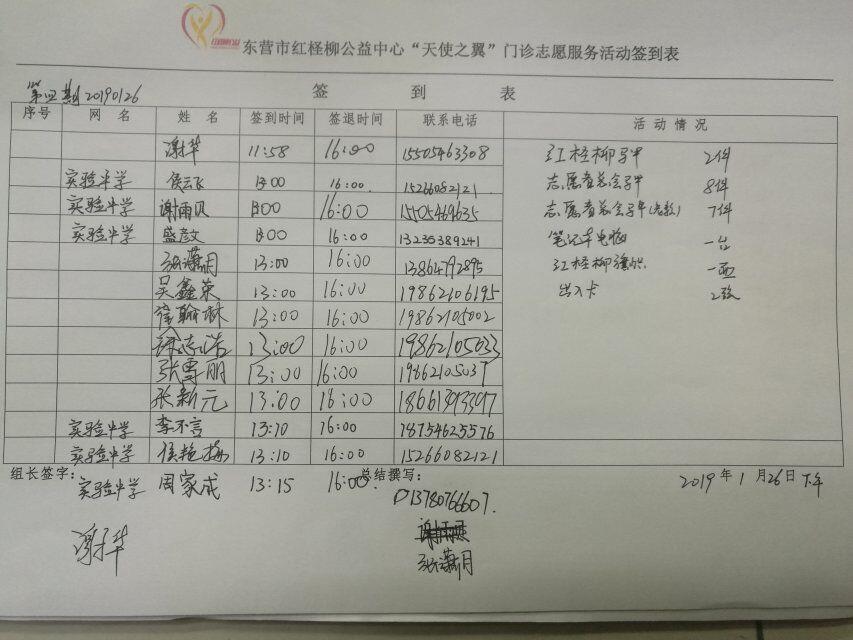 东营市红柽柳公益中心“天使之翼”门诊志愿服务活动签到表
第四期 20190126
签 到 表
序号 网 名 姓 名 签到时间 签退时间 联系电话 活 动 情 况
谢华 11:58 16:00 15505463308 红柽柳马甲 2件
实验中学 侯云飞 13:00 16:00. 15266082121. 志愿者总会马甲 8件
实验中学 谢雨贝 13:00 16:00 15505469635 志愿者总会马甲 7件
实验中学 盛彦文 13:00 16:00 13235389241 笔记本电脑 一台
张潇月 13:00 16:00 13864792895 红柽柳旗帜 一面
吴鑫荣 13:00 16:00 19862106195 出入卡 2张
崔翰琳 13:00 16:00 19862105002
徐志浩 13:00 16:00 19862105033
张雪朋 13:00 16:00 19862105037
张新元 13:00 16:00 18661393397
实验中学 李不言 13:10 16:00 18754625576
实验中学 侯艳梅 13:10 16:00 15266082121
组长签字: 总结撰写: 2019年1月26日下午
实验中学 周家成 13:15 16:00. 13780766607.
谢华
张潇月